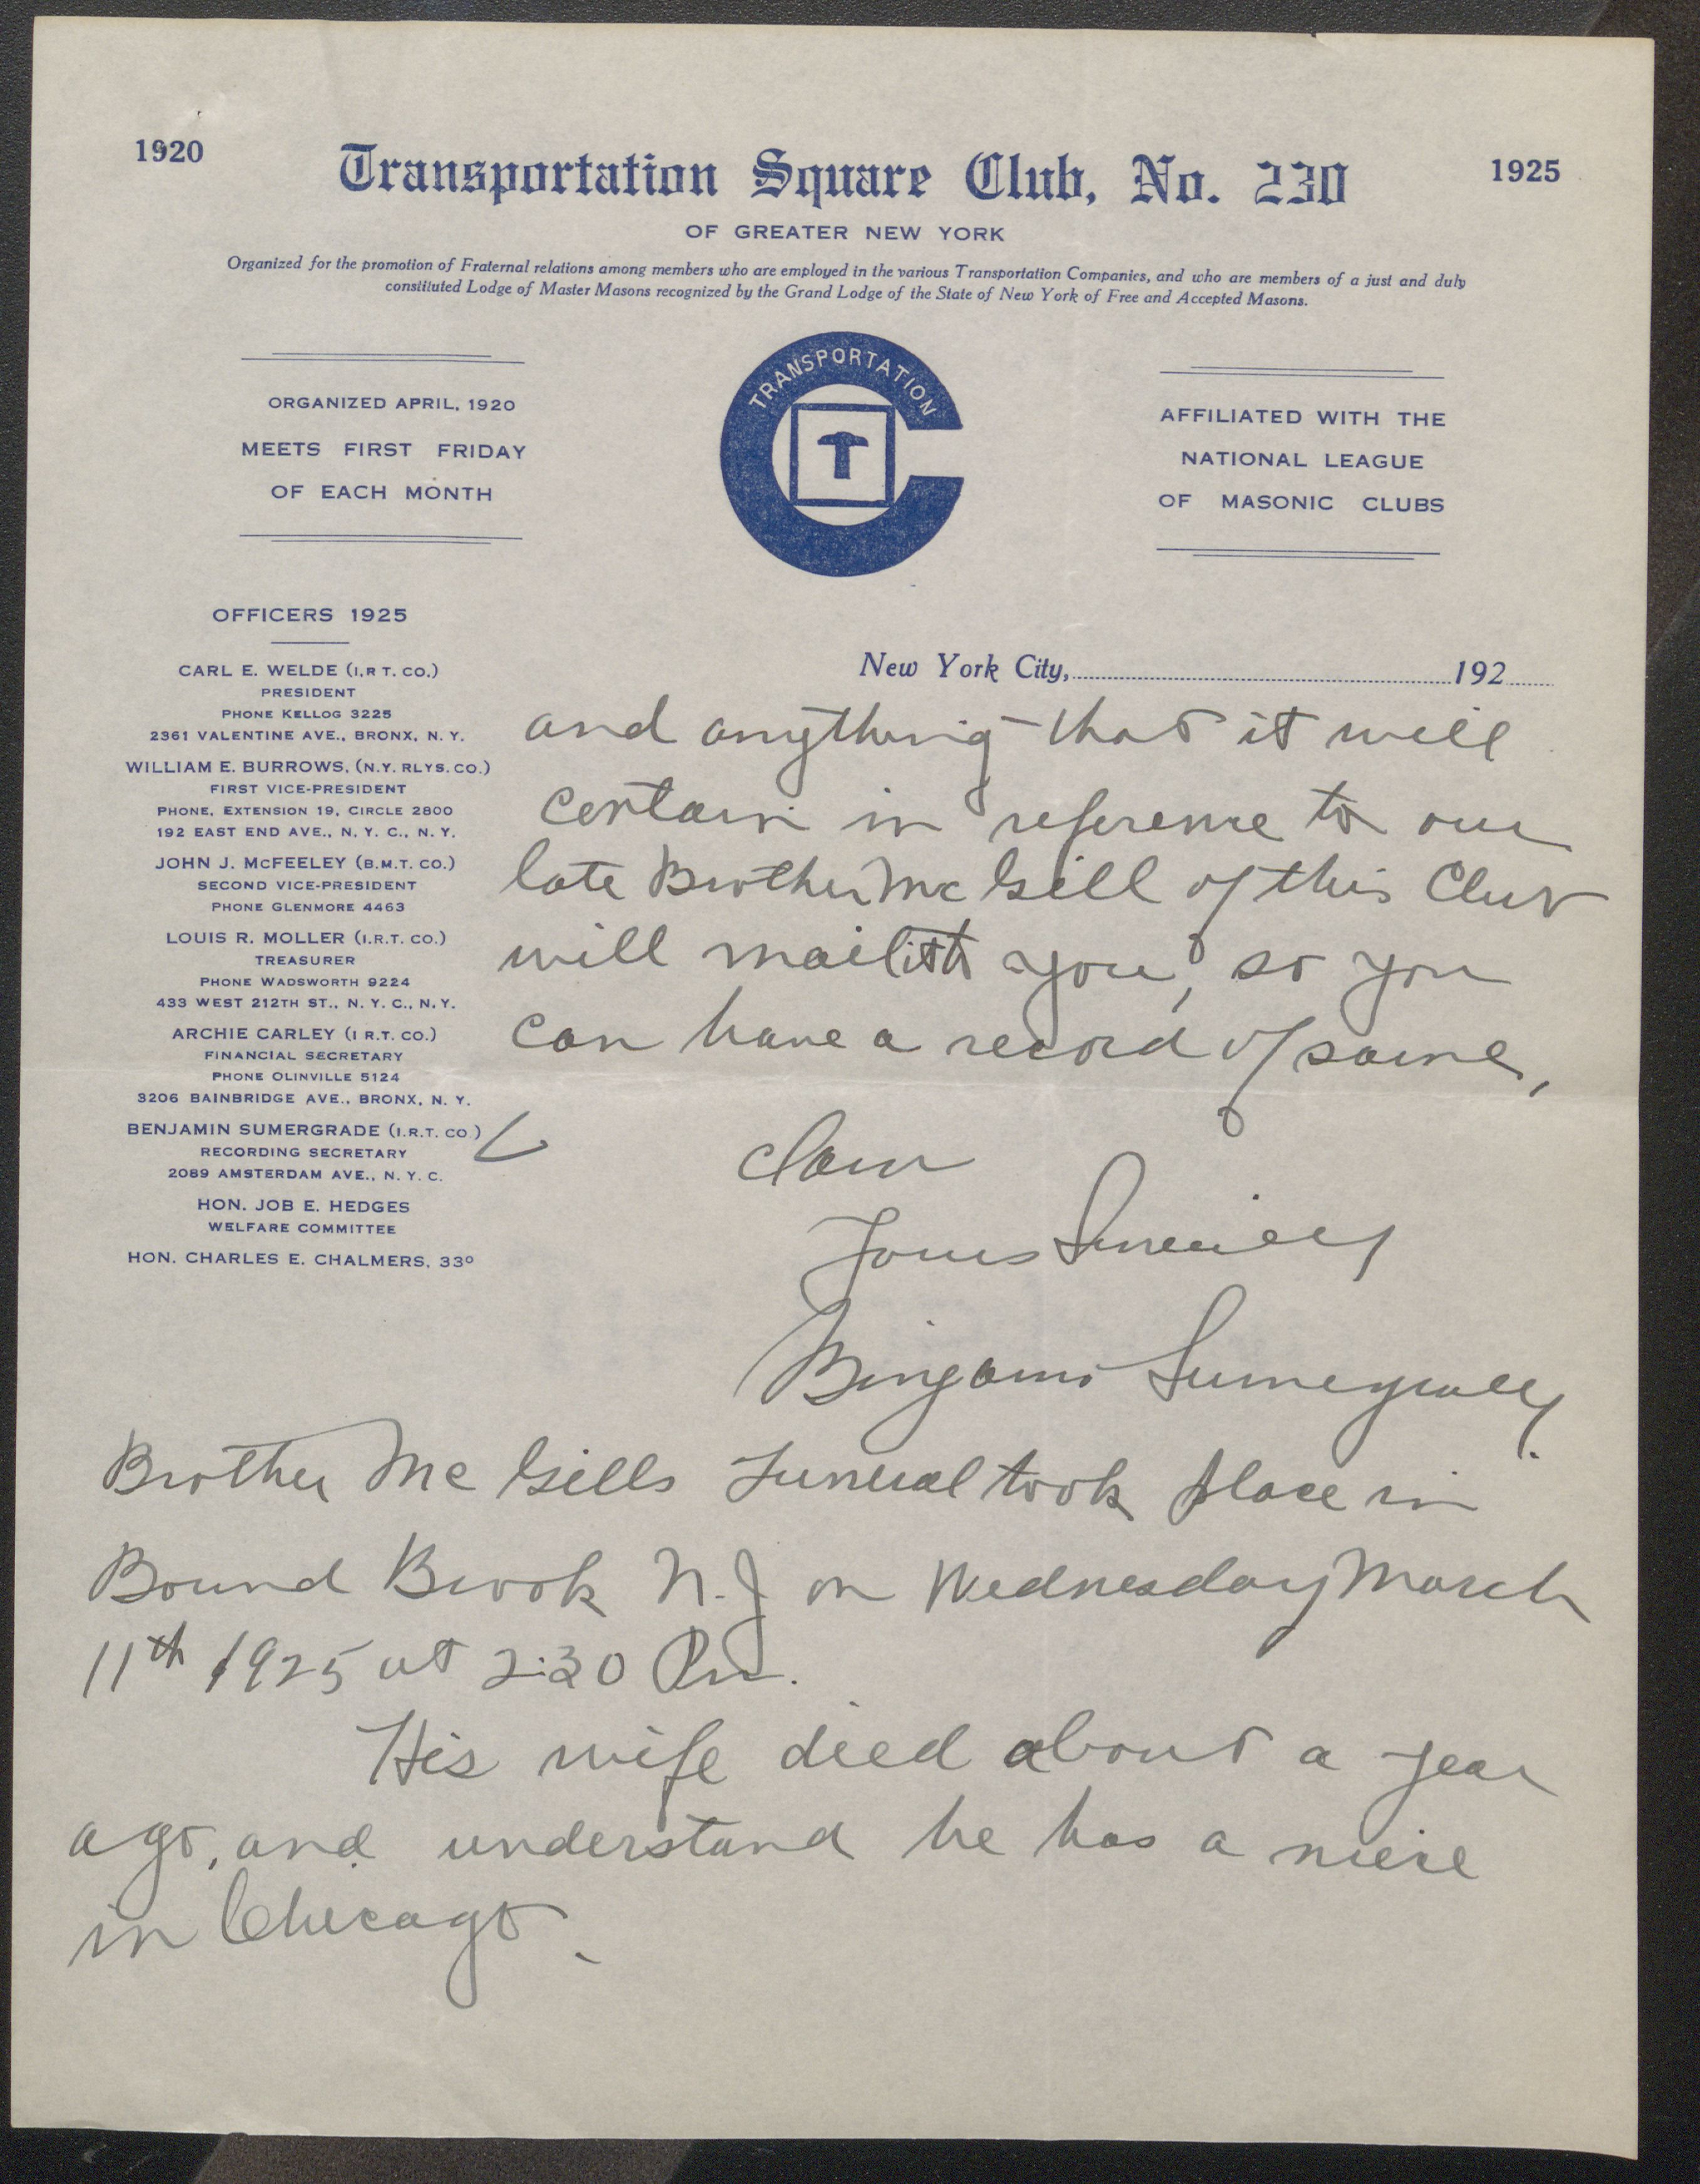 1920
Transportation Square Club, No. 230
1925
OF GREATER NEW YORK
Organized for the promotion of Fraternal relations among members who are employed in the various Transportation Companies, and who are members of a just and duly
constituted Lodge of Master Masons recognized by the Grand Lodge of the State of New York of Free and Accepted Masons.
ORGANIZED APRIL, 1920
MEETS FIRST FRIDAY
OF EACH MONTH
TRANSPORTATION
T
AFFILIATED WITH THE
NATIONAL LEAGUE
OF MASONIC CLUBS
OFFICERS 1925
CARL E. WELDE (I.R T. CO.)
PRESIDENT
PHONE KELLOG 3225
2361 VALENTINE AVE., BRONX, N. Y.
WILLIAM E. BURROWS, (N.Y. RLYS. CO.)
FIRST VICE-PRESIDENT
PHONE, EXTENSION 19, CIRCLE 2800
192 EAST END AVE., N. Y. C., N. Y.
JOHN J. McFEELEY (B.M.T. CO.)
SECOND VICE-PRESIDENT
PHONE GLENMORE 4463
LOUIS R. MOLLER (I.R.T. CO.)
TREASURER
PHONE WADSWORTH 9224
433 WEST 212TH ST., N. Y. C., N. Y.
ARCHIE CARLEY (I R.T. CO.)
FINANCIAL SECRETARY
PHONE OLINVILLE 5124
3206 BAINBRIDGE AVE., BRONX, N. Y.
BENJAMIN SUMERGRADE (I.R.T. CO.)
RECORDING SECRETARY
2089 AMSTERDAM AVE., N. Y. C.
HON. JOB E. HEDGES
WELFARE COMMITTEE
HON. CHARLES E. CHALMERS, 33º
New York City, 192
and anything that it will
certain in reference to our
late Brother McGill of this Club
will mail it to you, so you
can have a record of same,
I am
Yours Sincerely
Benjamin Sumergrade
Brother McGills Funeral took place in
Bound Brook N.J on Wednesday March
11th 1925 at 2:30 Pm.
His wife died about a year
ago, and understand he has a niece
in Chicago.